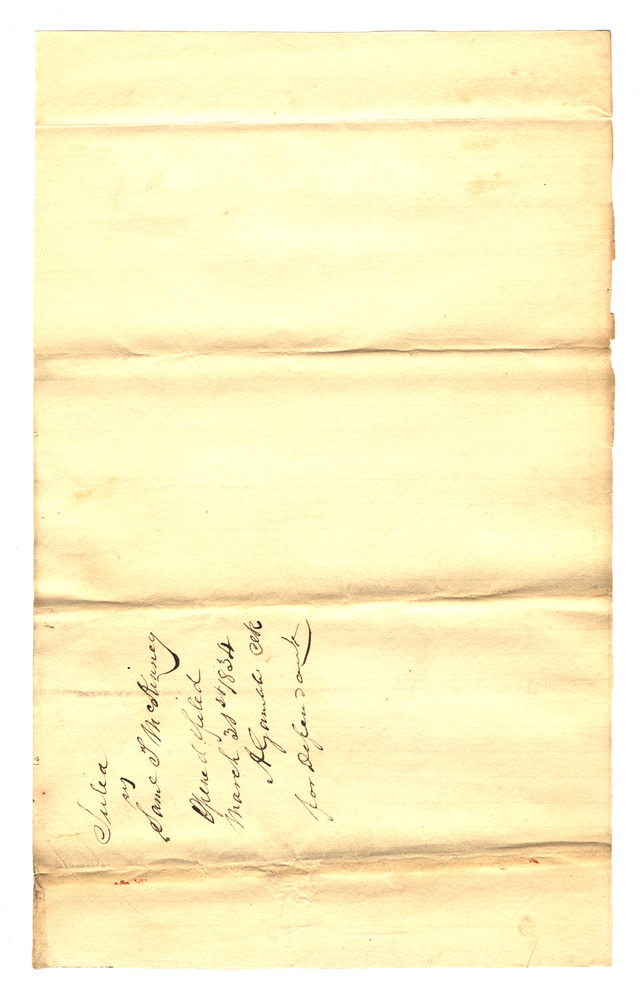 Julia
vs
Saml T McKinney
Opened & filed
March 31st 1834
A Gamble Clk
for Defendant